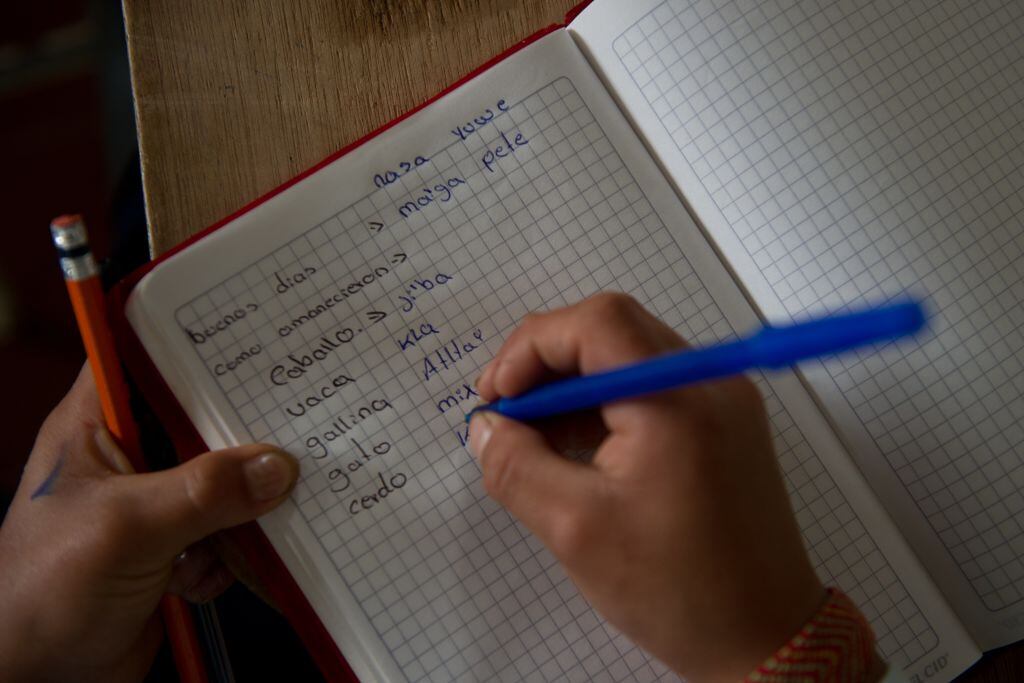 nasa yuwe
buenos dias » maiga pete
como amanecieron »
caballo. » jiba
vaca kla
gallina Atllaʼ
gato mix
cerdo
ELCID